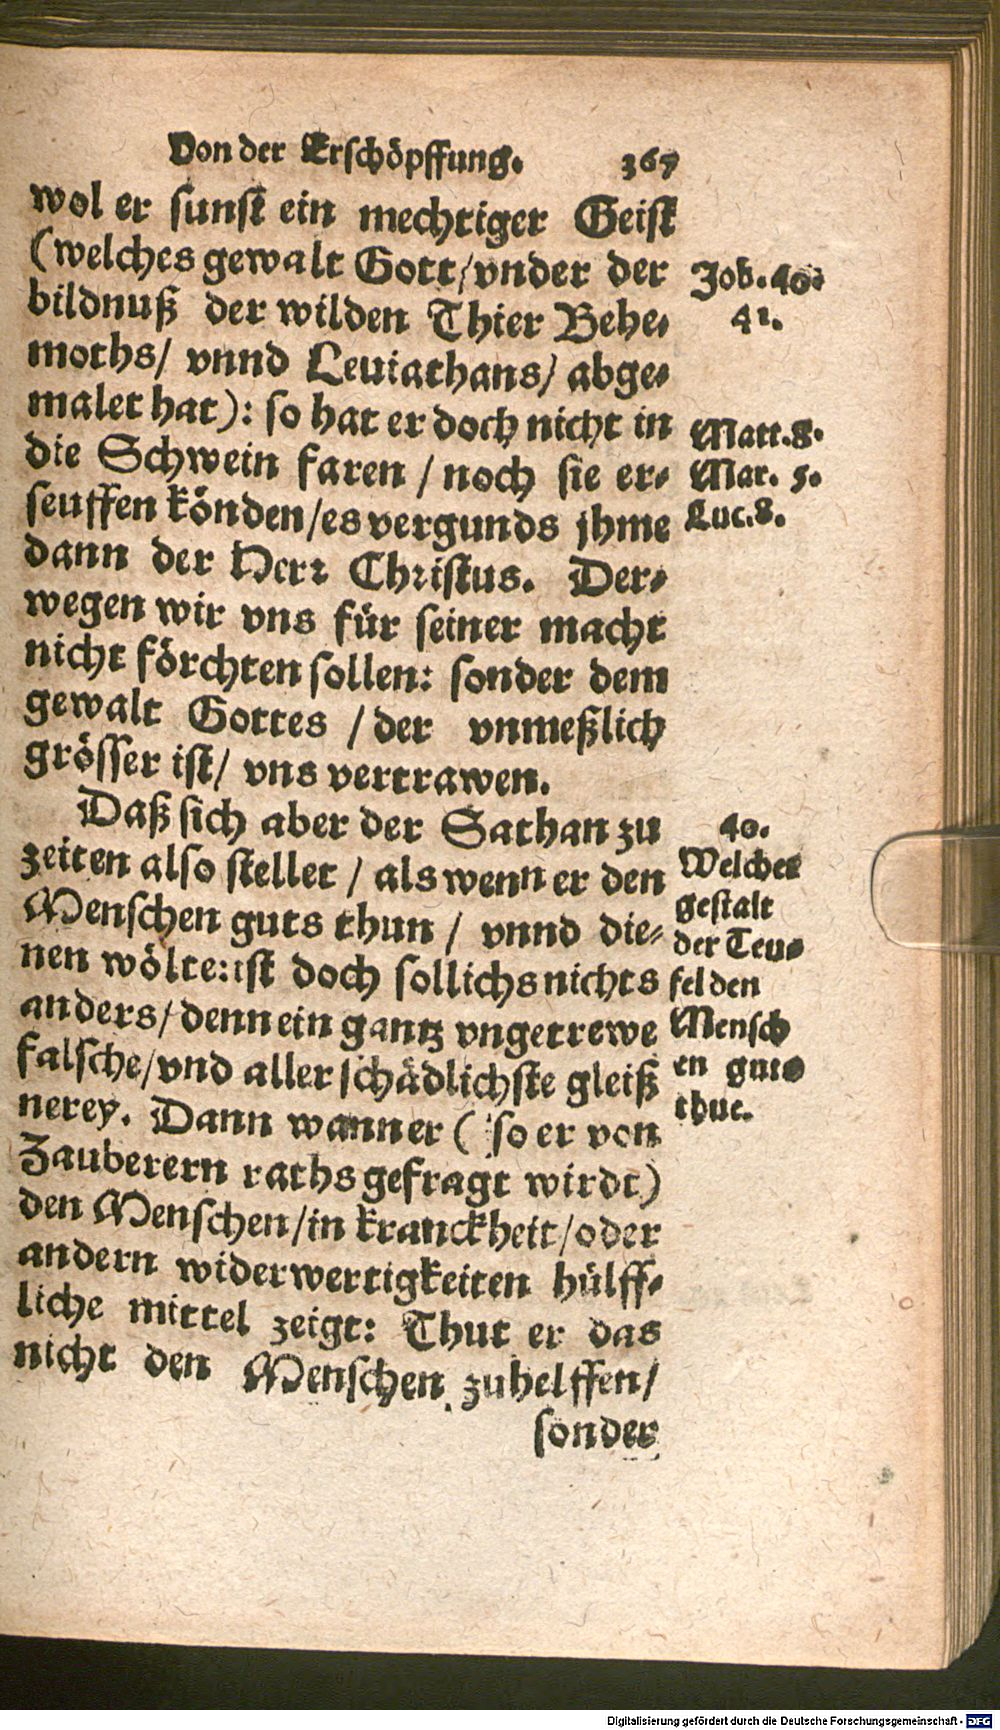 Von der Erschöpffung. 367
wol er sunst ein mechtiger Geist
(welches gewalt Gott/vnder der
bildnuß der wilden Thier Behe-
moths/ vnnd Leuiathans/ abge-
malet hat): so hat er doch nicht in
die Schwein faren / noch sie er-
seuffen könden/es vergunds jhme
dann der Herr Christus. Der-
wegen wir vns für seiner macht
nicht förchten sollen: sonder dem
gewalt Gottes / der vnmeßlich
grösser ist/ vns vertrawen.
Daß sich aber der Sathan zu
zeiten also stellet / als wenn er den
Menschen guts thun / vnnd die-
nen wölte: ist doch sollichs nichts
anders/ denn ein gantz vngetrewe
falsche/vnd aller schädlichste gleiß
nerey. Dann wann er ( so er von
Zauberern raths gefragt wirdt)
den Menschen/in kranckheit/oder
andern widerwertigkeiten hülff-
liche mittel zeigt: Thut er das
nicht den Menschen zuhelffen/
sonder
Job. 40.
41.
Matt. 8.
Mar. 5.
Luc. 8.
40.
Welcher
gestalt
der Teu-
fel den
Mensch
en guts
thue.
Digitalisierung gefördert durch die Deutsche Forschungsgemeinschaft - DFG